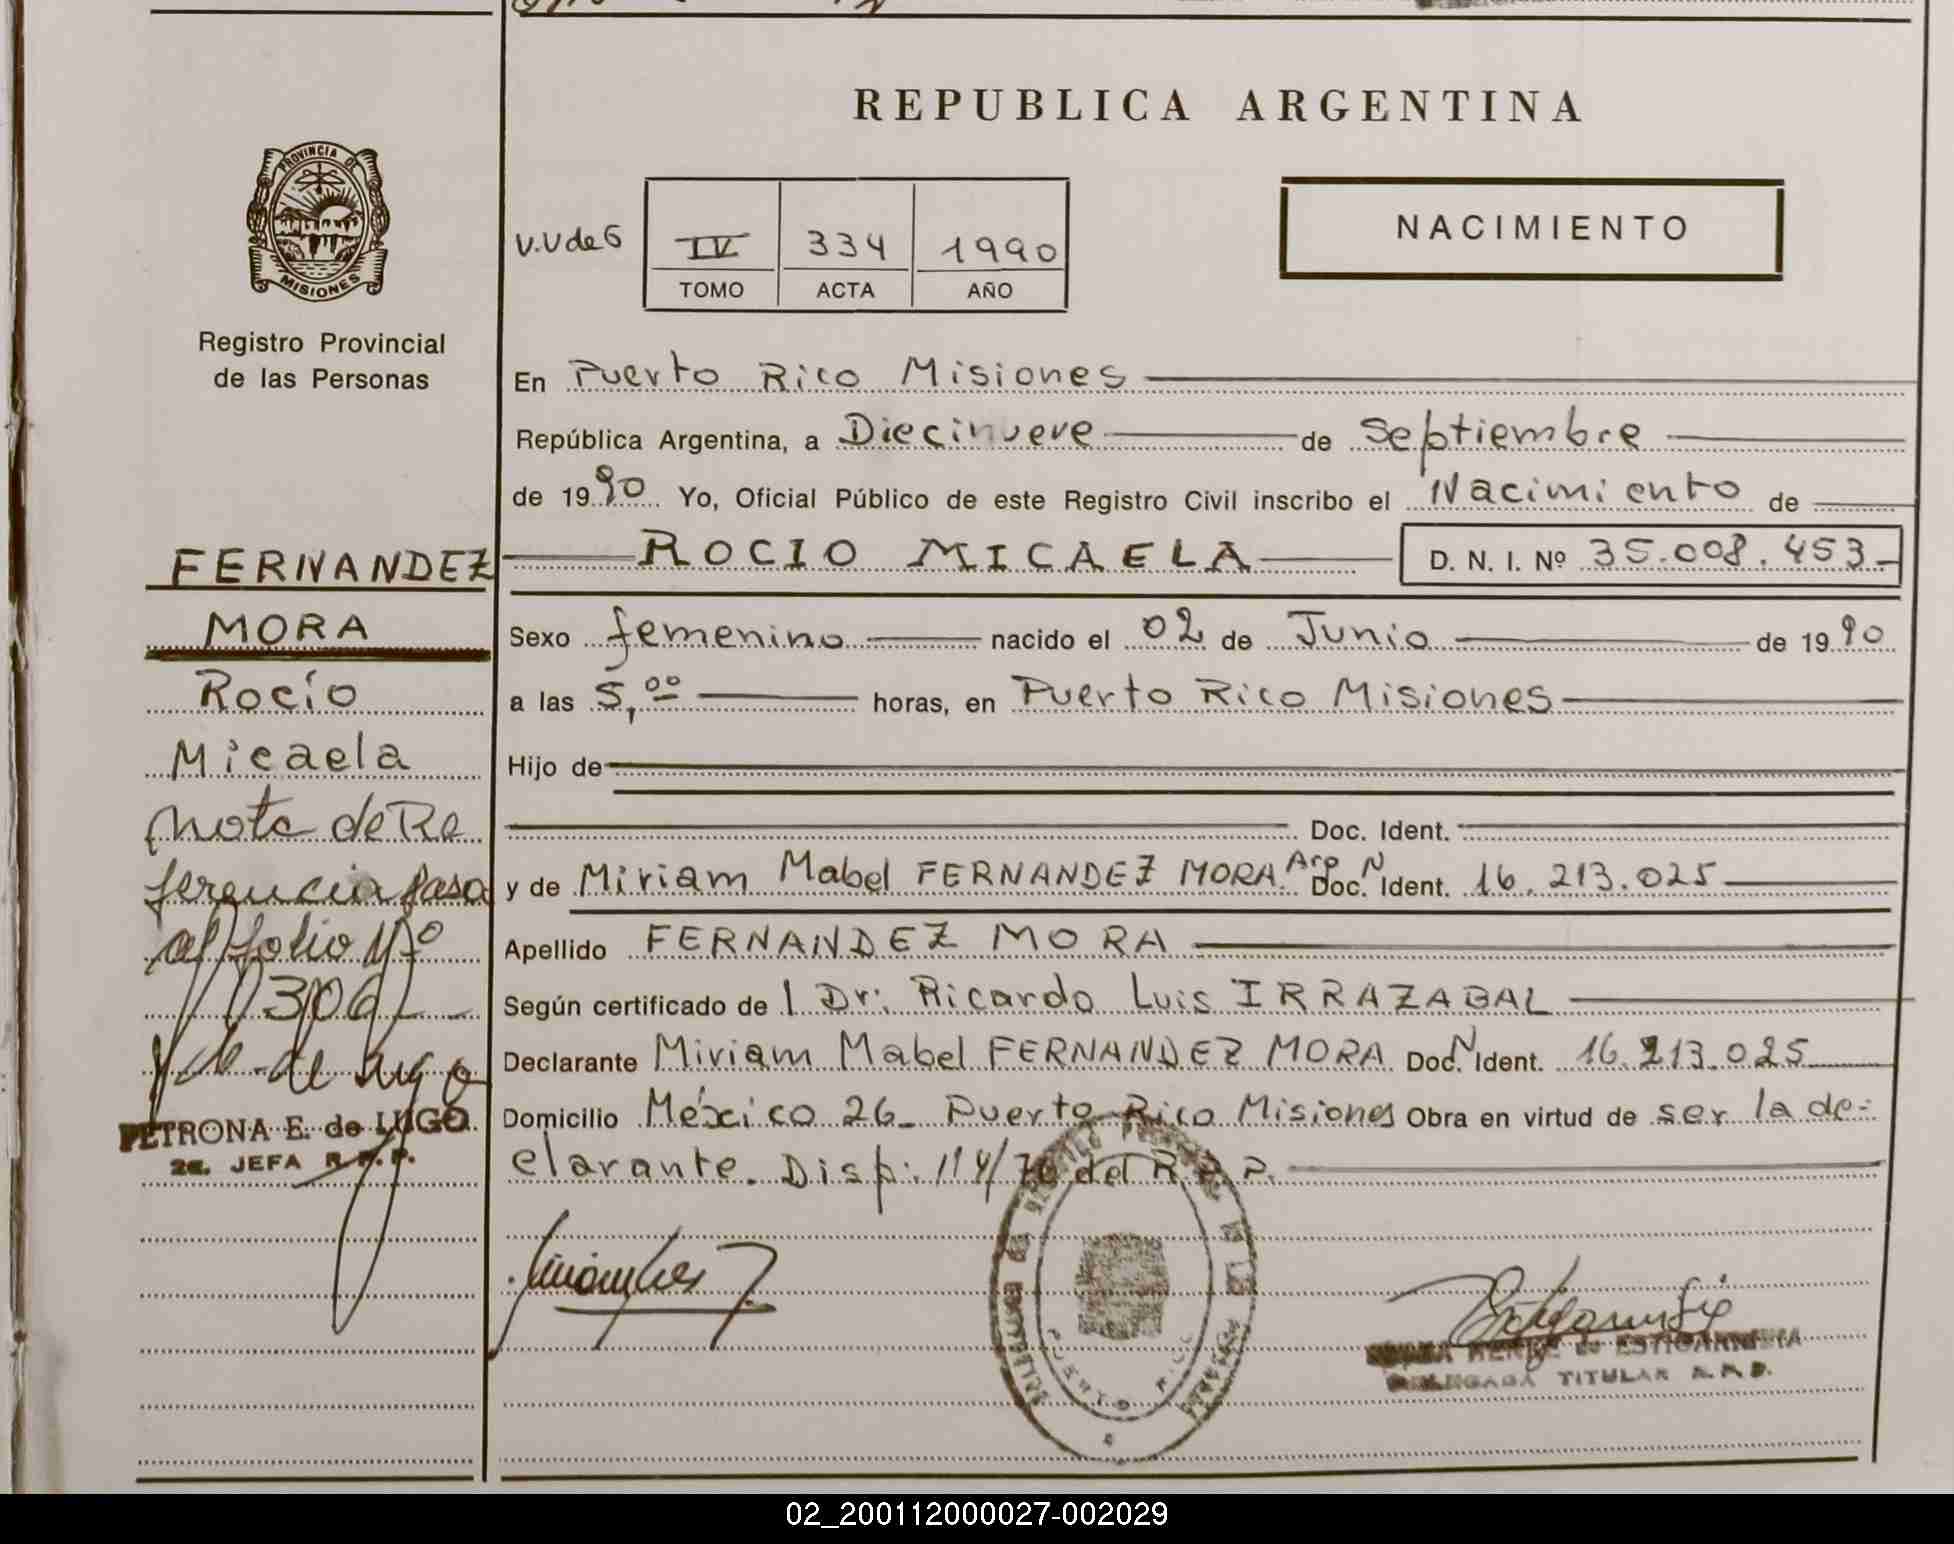 REPUBLICA ARGENTINA
PROVINCIA DE
MISIONES
Registro Provincial
de las Personas
V.V de G
IV 334 1990
TOMO ACTA AÑO
NACIMIENTO
En Puerto Rico Misiones
República Argentina, a Diecinueve de Septiembre
de 1990 Yo, Oficial Público de este Registro Civil inscribo el Nacimiento de
ROCIO MICAELA D. N. I. Nº 35.008.453
Sexo femenino nacido el 02 de Junio de 1990
a las 5,00 horas, en Puerto Rico Misiones
Hijo de
Doc. Ident.
y de Miriam Mabel FERNANDEZ MORA. Arg Doc. N Ident. 16.213.025
Apellido FERNANDEZ MORA
Según certificado de l Dr: Ricardo Luis IRRAZABAL
Declarante Miriam Mabel FERNANDEZ MORA Doc. N Ident. 16.213.025
Domicilio México 26_ Puerto Rico Misiones Obra en virtud de ser la de-
clarante. Disp: 114/70 del R.P.P.
FERNANDEZ
MORA
Rocío
Micaela
Nota de Re
ferencia pasa
al folio Nº
306
PETRONA E. de LUGO
2a. JEFA R.P.P.
PUERTO RICO
DELEGADA TITULAR R.P.P.
02_200112000027-002029